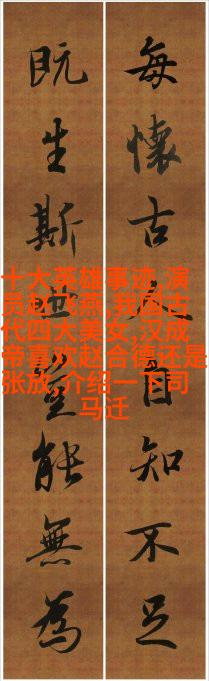 每懷古人自知不足
既生斯世豈能無為
十大英雄事迹,演
员赵飞燕,我国古
代四大美女,汉成
帝喜欢赵合德还是
张放,介绍一下司
马迁